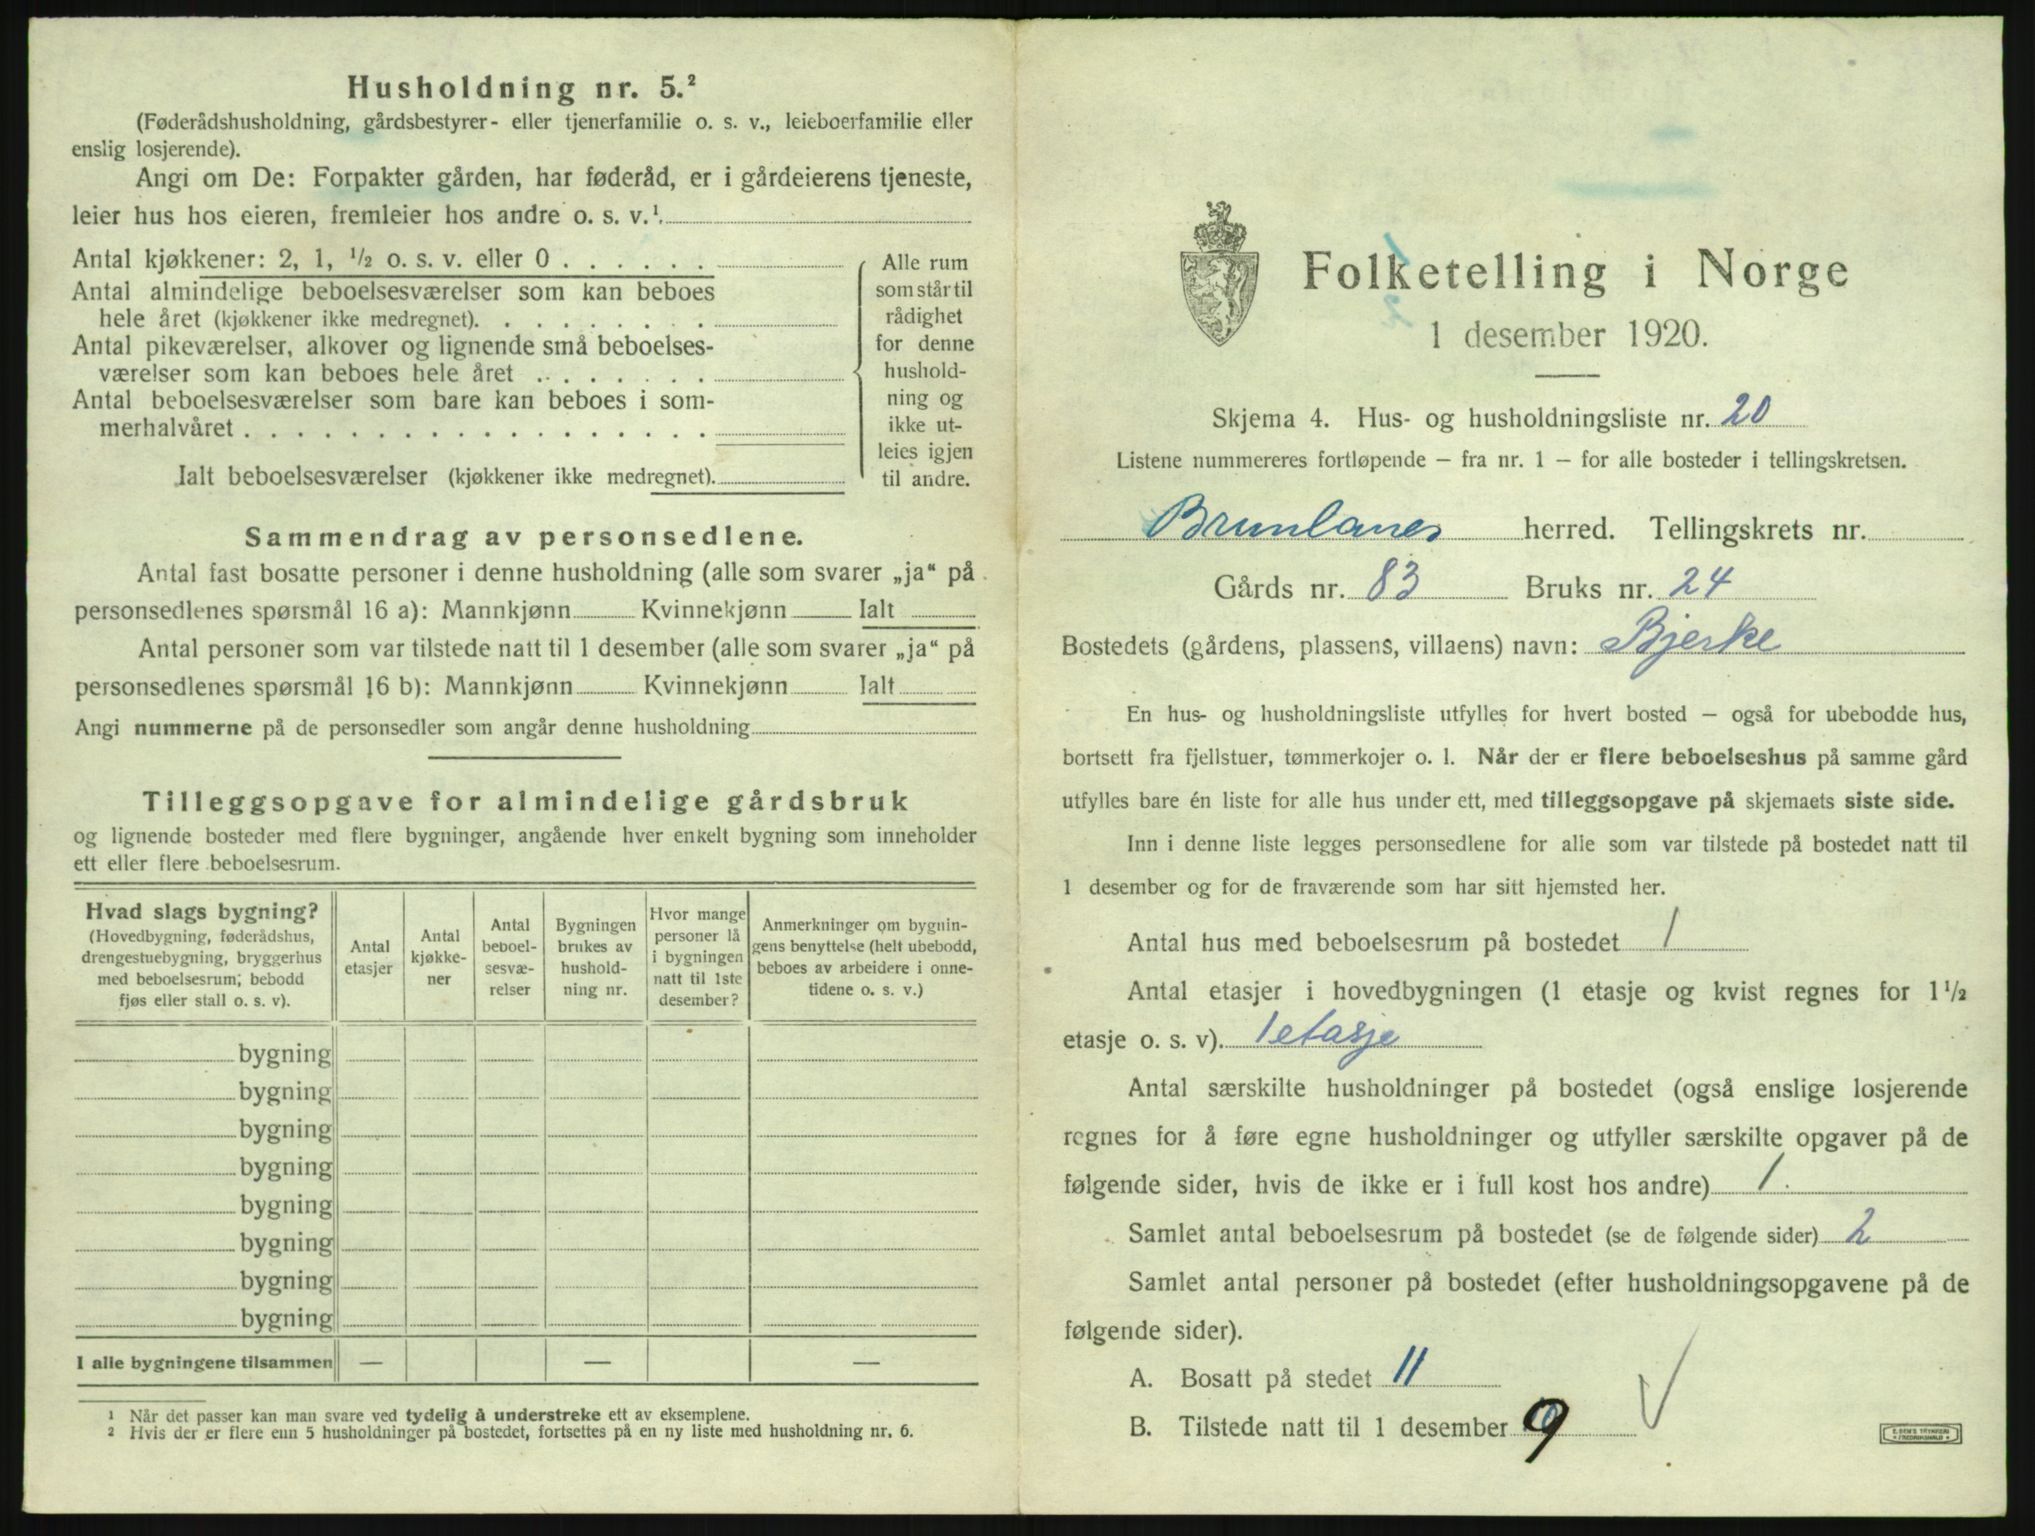 Husholdning nr. 5.²
(Føderådshusholdning, gårdsbestyrer- eller tjenerfamilie o. s. v., leieboerfamilie eller
enslig losjerende).
Angi om De: Forpakter gården, har føderåd, er i gårdeierens tjeneste,
leier hus hos eieren, fremleier hos andre o. s. v.¹
Antal kjøkkener: 2, 1, ½ o. s. v. eller 0 . . . . . .
Antal almindelige beboelsesværelser som kan beboes
hele året (kjøkkener ikke medregnet). . . . . . . . .
Antal pikeværelser, alkover og lignende små beboelses-
værelser som kan beboes hele året . . . . . . .
Antal beboelsesværelser som bare kan beboes i som-
merhalvåret . . . . . . . . . . . . . . . . . .
Ialt beboelsesværelser (kjøkkener ikke medregnet).
Alle rum
som står til
rådighet
for denne
hushold-
ning og
ikke ut-
leies igjen
til andre.
Sammendrag av personsedlene.
Antal fast bosatte personer i denne husholdning (alle som svarer „ja“ på
personsedlenes spørsmål 16 a): Mannkjønn Kvinnekjønn Ialt
Antal personer som var tilstede natt til 1 desember (alle som svarer „ja“ på
personsedlenes spørsmål 16 b): Mannkjønn Kvinnekjønn Ialt
Angi nummerne på de personsedler som angår denne husholdning
Tilleggsopgave for almindelige gårdsbruk
og lignende bosteder med flere bygninger, angående hver enkelt bygning som inneholder
ett eller flere beboelsesrum.
Hvad slags bygning?
(Hovedbygning, føderådshus,
drengestuebygning, bryggerhus
med beboelsesrum, bebodd
fjøs eller stall o. s. v).
Antal
etasjer
Antal
kjøkke-
ner
Antal
beboel-
sesvæ-
relser
Bygningen
brukes av
hushold-
ning nr.
Hvor mange
personer lå
i bygningen
natt til 1ste
desember?
Anmerkninger om bygnin-
gens benyttelse (helt ubebodd,
beboes av arbeidere i onne-
tidene o. s. v.)
bygning
bygning
bygning
bygning
bygning
bygning
bygning
bygning
I alle bygningene tilsammen — — —
¹ Når det passer kan man svare ved tydelig å understreke ett av eksemplene.
² Hvis der er flere enn 5 husholdninger på bostedet, fortsettes på en ny liste med husholdning nr. 6.
Folketelling i Norge
1 desember 1920.
Skjema 4. Hus- og husholdningsliste nr. 20
Listene nummereres fortløpende — fra nr. 1 — for alle bosteder i tellingskretsen.
Brunlanes herred. Tellingskrets nr.
Gårds nr. 83 Bruks nr. 24
Bostedets (gårdens, plassens, villaens) navn: Bjerke
En hus- og husholdningsliste utfylles for hvert bosted — også for ubebodde hus,
bortsett fra fjellstuer, tømmerkojer o. l. Når der er flere beboelseshus på samme gård
utfylles bare én liste for alle hus under ett, med tilleggsopgave på skjemaets siste side.
Inn i denne liste legges personsedlene for alle som var tilstede på bostedet natt til
1 desember og for de fraværende som har sitt hjemsted her.
Antal hus med beboelsesrum på bostedet 1
Antal etasjer i hovedbygningen (1 etasje og kvist regnes for 1½
etasje o. s. v). 1 etasje
Antal særskilte husholdninger på bostedet (også enslige losjerende
regnes for å føre egne husholdninger og utfyller særskilte opgaver på de
følgende sider, hvis de ikke er i full kost hos andre) 1.
Samlet antal beboelsesrum på bostedet (se de følgende sider) 2
Samlet antal personer på bostedet (efter husholdningsopgavene på de
følgende sider).
A. Bosatt på stedet 11
B. Tilstede natt til 1 desember 9